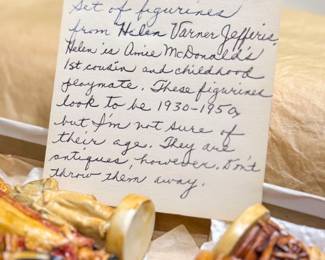 Set of figurines
from Helen Varner Jefferis.
Helen is Amie McDonald's
1st cousin and childhood
playmate. These figurines
look to be 1930-1950,
but I'm not sure of
their age. They are
antiques, however. Don't
throw them away.